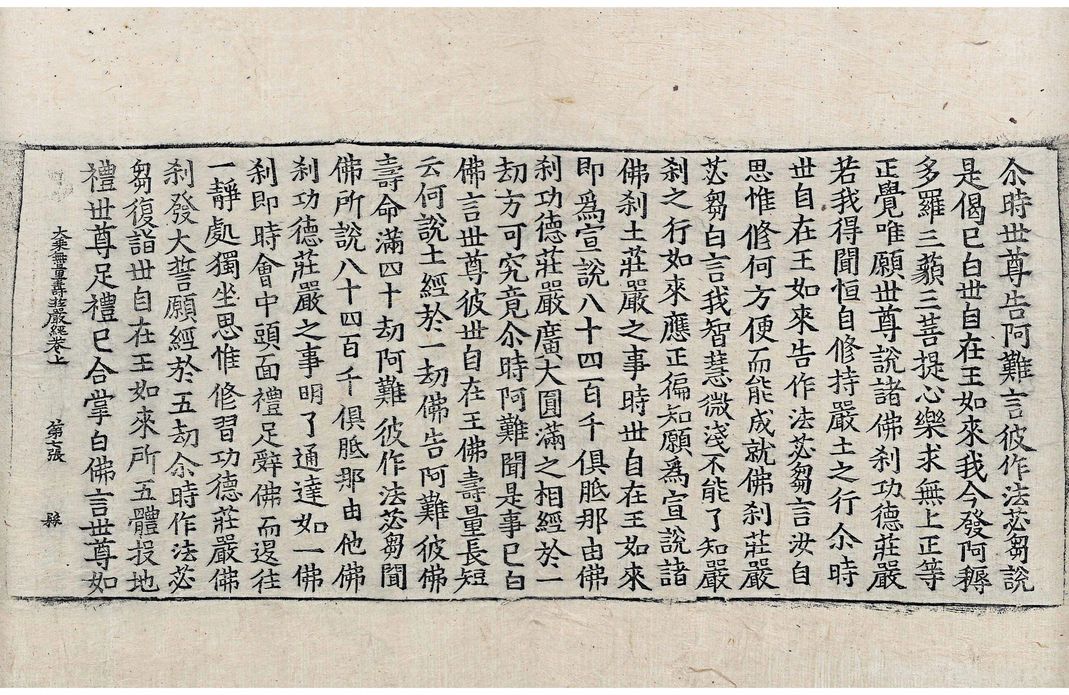 尒時世尊告阿難言彼作法苾芻說
是偈已白世自在王如來我今發阿耨
多羅三藐三菩提心樂求無上正等
正覺唯願世尊說諸佛刹功德莊嚴
若我得聞恒自修持嚴土之行尒時
世自在王如來告作法苾芻言汝自
思惟修何方便而能成就佛刹莊嚴
苾芻白言我智慧微淺不能了知嚴
刹之行如來應正徧知願爲宣說諸
佛刹土莊嚴之事時世自在王如來
即爲宣說八十四百千俱胝那由佛
刹功德莊嚴廣大圓滿之相經於一
劫方可究竟尒時阿難聞是事已白
佛言世尊彼世自在王佛壽量長短
云何說土經於一劫佛告阿難彼佛
壽命滿四十劫阿難彼作法苾芻聞
佛所說八十四百千俱胝那由他佛
刹功德莊嚴之事明了通達如一佛
刹即時會中頭面禮足辭佛而退往
一靜處獨坐思惟修習功德莊嚴佛
刹發大誓願經於五劫尒時作法苾
芻復詣世自在王如來所五體投地
禮世尊足禮已合掌白佛言世尊如
大乘無量壽莊嚴經卷上 第七張